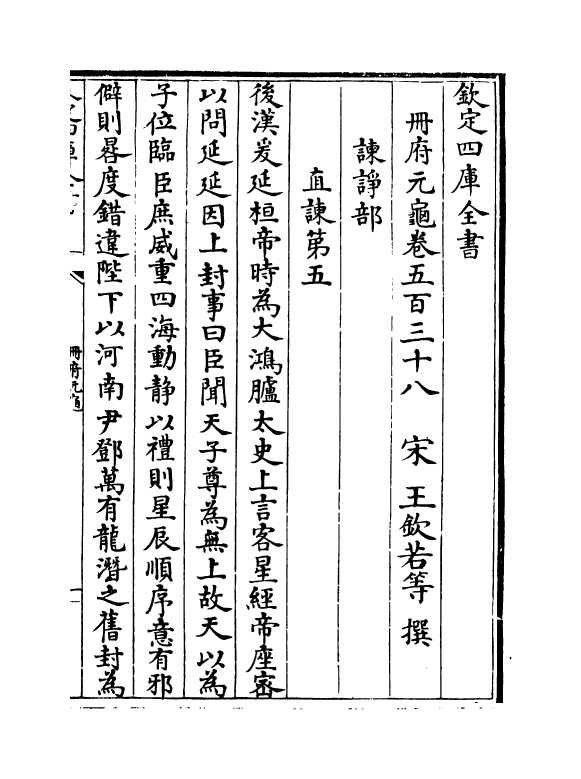 欽定四庫全書
冊府元龜卷五百三十八　宋　王欽若等　撰
諫諍部
直諫第五
後漢爰延桓帝時為大鴻臚太史上言客星經帝座密
以問延延因上封事曰臣聞天子尊為無上故天以為
子位臨臣庶威重四海動静以禮則星辰順序意有邪
僻則晷度錯違陛下以河南尹鄧萬有龍潛之舊封為
冊府元龜
一